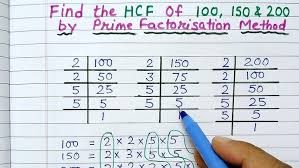 Find the HCF Of 100, 150 & 200
by Prime Factorisation Method
2 100 2 150 2 200
2 50 3 75 2 100
5 25 5 25 2 50
5 5 5 5 5 25
1 5 5
1
100 = 2 × 2 × 5 × 5
150 = 2 × 3 × 5 × 5